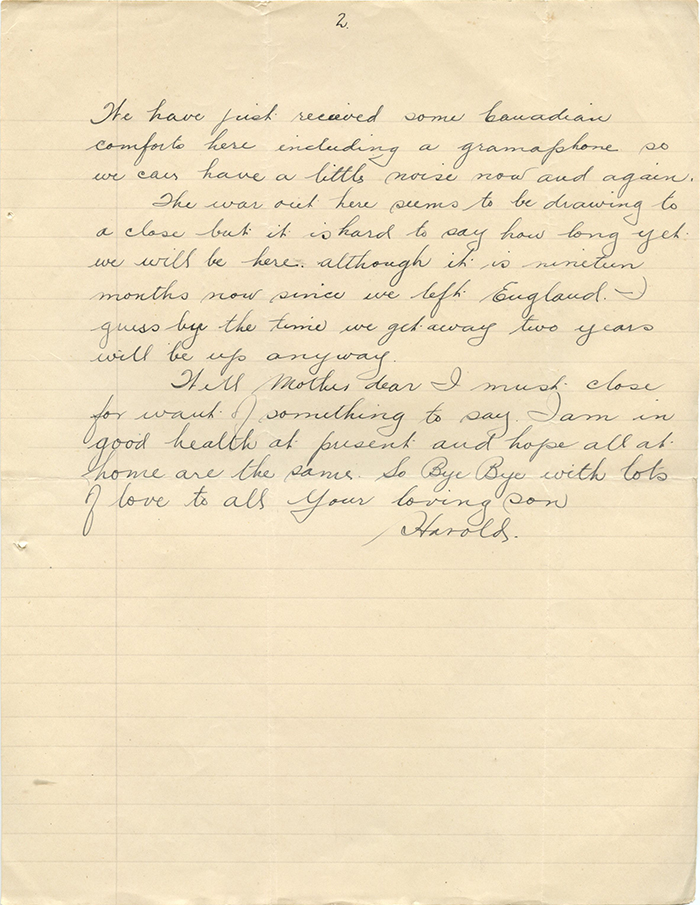 2.
We have just received some Canadian
comforts here including a gramaphone so
we can have a little noise now and again.
The war out here seems to be drawing to
a close but it is hard to say how long yet
we will be here. although it is nineteen
months now since we left England. I
guess by the time we get away two years
will be up anyway.
Well Mother dear I must close
for want of something to say I am in
good health at present and hope all at
home are the same. So Bye Bye with lots
of love to all Your loving son
Harold.